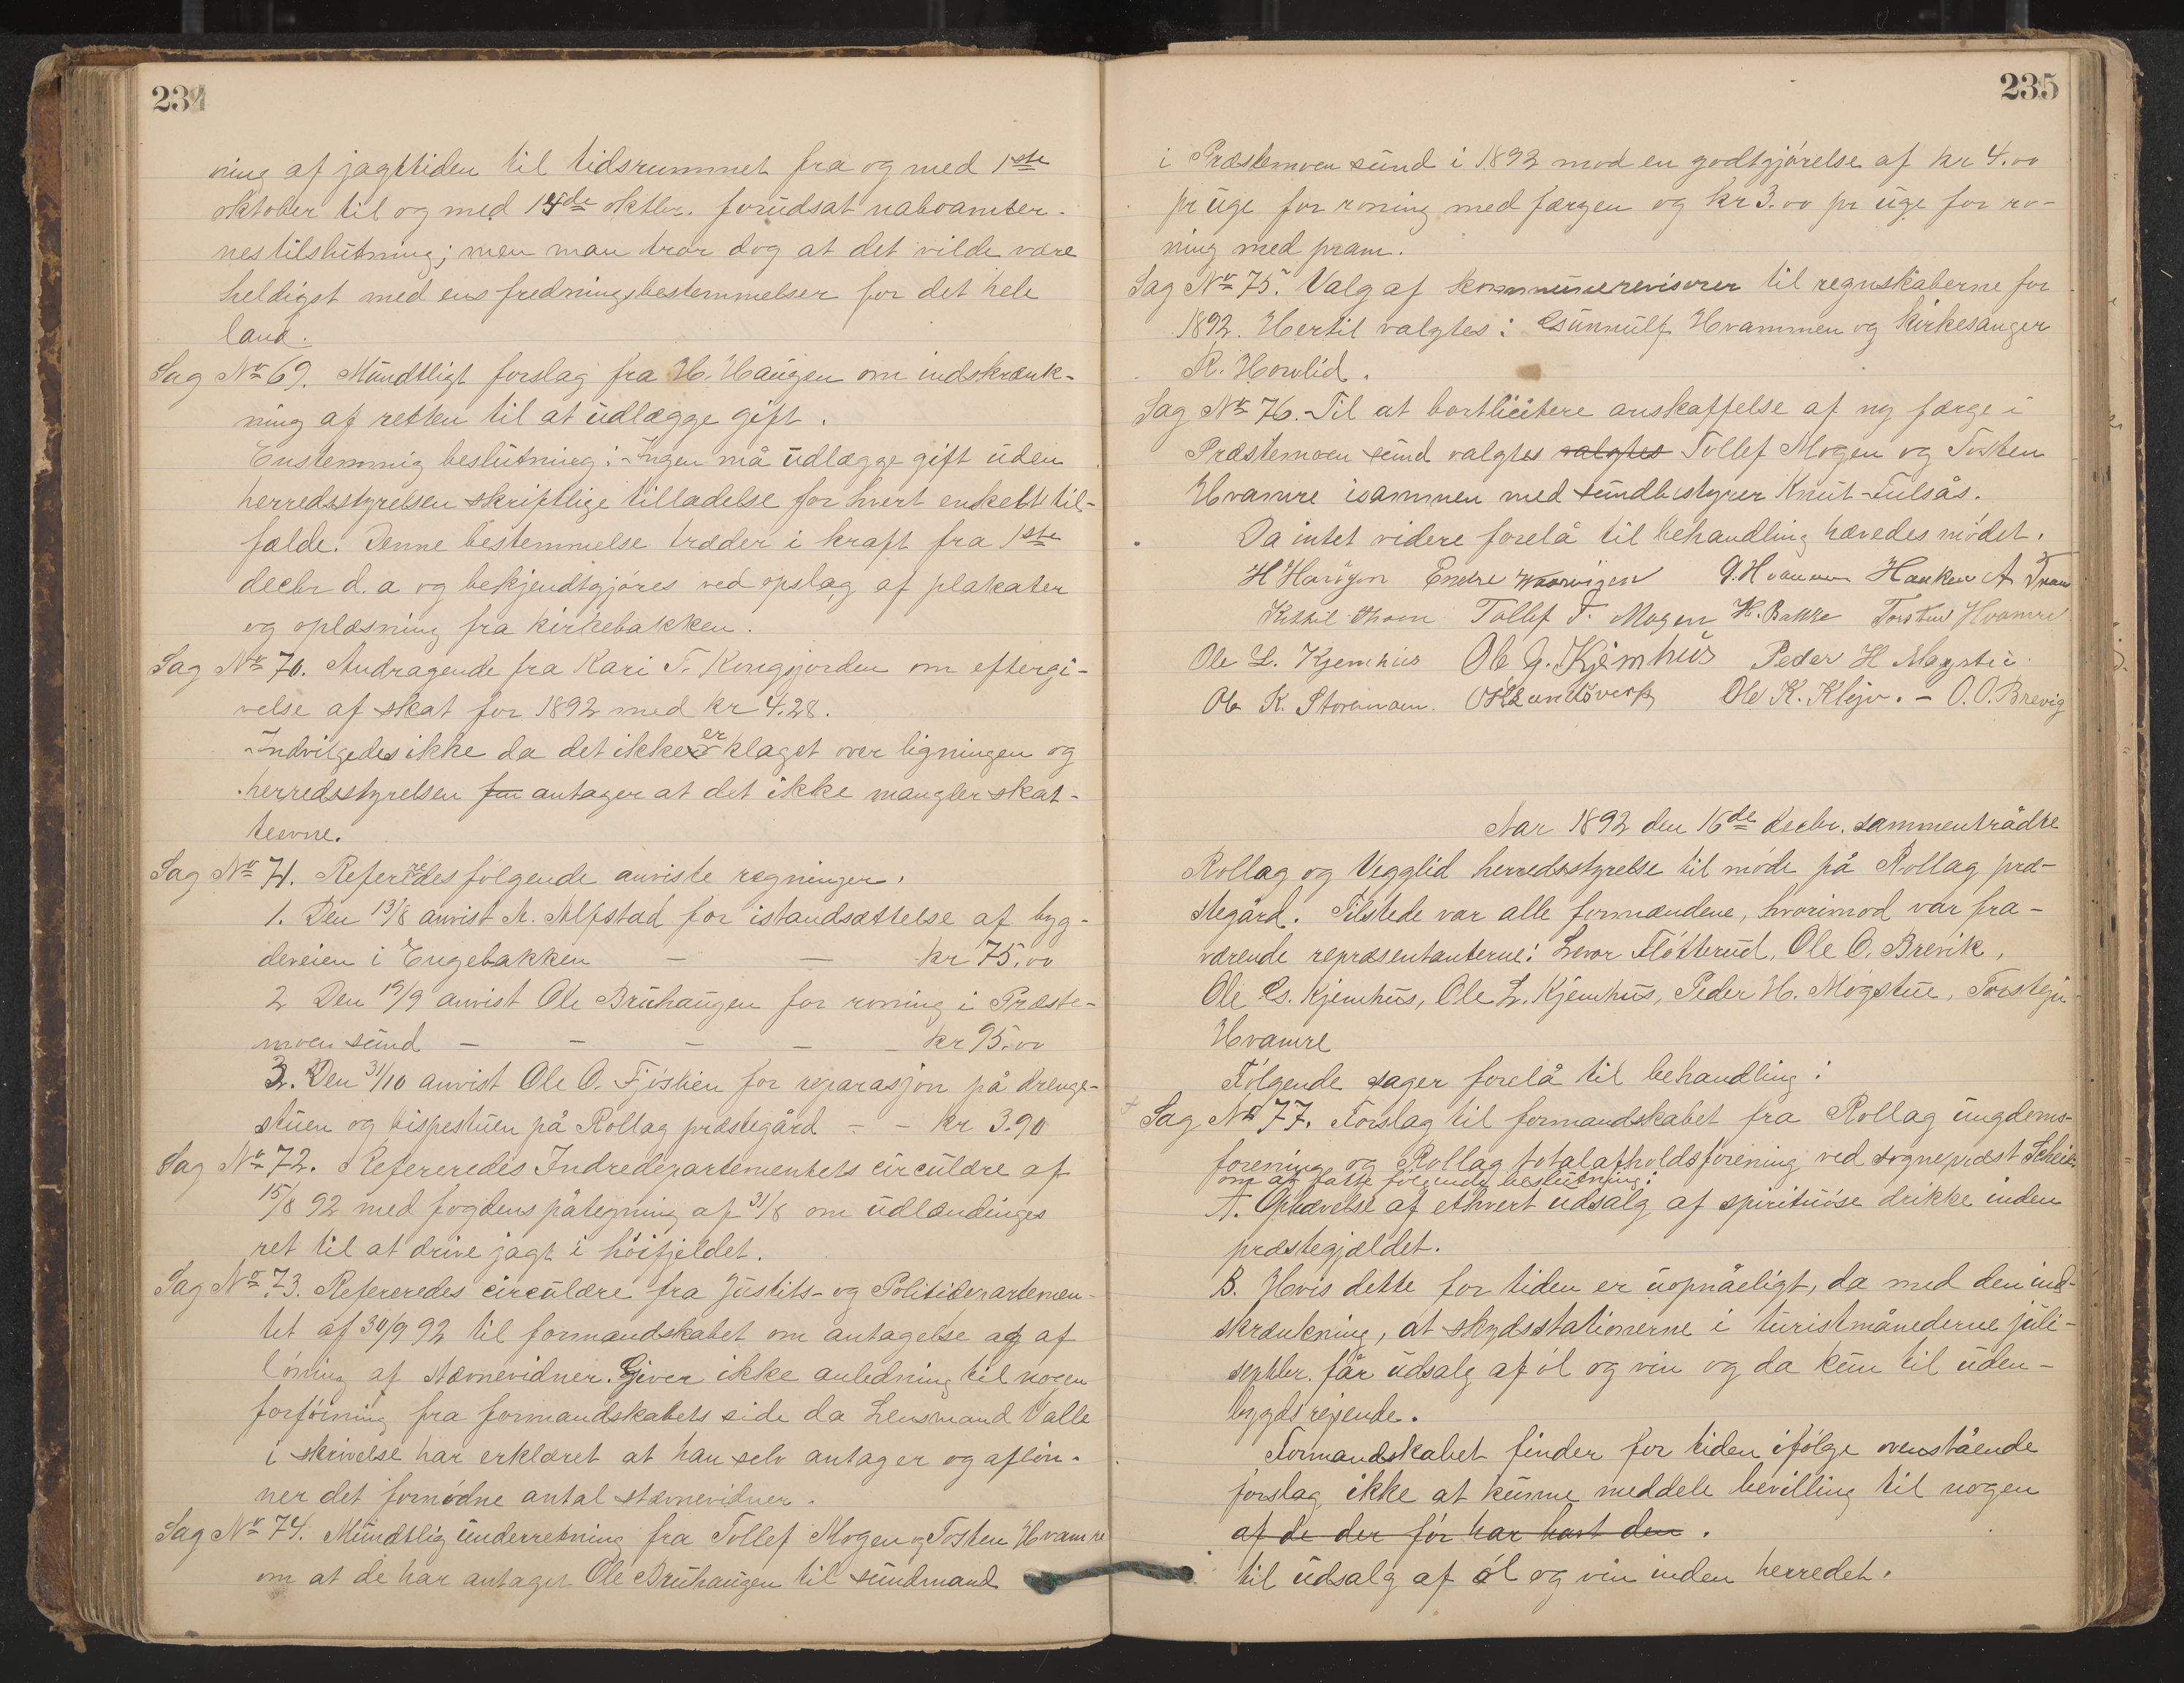 234
ning af jagttiden til tidsrummet fra og med 1ste
oktober til og med 14de oktbr. forudsat naboamter-
nes tilslutning; men man tror dog at det vilde være
heldigst med ens fredningsbestemmelser for det hele
land.
Sag No 69. Mundtligt forslag fra H. Haugen om indskrænk-
ning af retten til at udlægge gift.
Enstemmig beslutning: Ingen må udlægge gift uden
herredsstyrelsen skriftlige tilladelse for hvert enkelt til-
fælde. Denne bestemmelse træder i kraft fra 1ste
decbr d. a og bekjendtgjøres ved opslag af plakater
og oplæsning fra kirkebakken.
Sag No 70. Andragende fra Kari T. Kongsjorden om eftergi-
velse af skat for 1892 med kr 4.28.
Indvilgedes ikke da det ikke er klaget over ligningen og
herredsstyrelsen antager at det ikke mangler skat-
teevne.
Sag No 71. Refereredes følgende anviste regninger.
1. Den 13/8 anvist A. Alfstad for istandsættelse af byg-
deveien i Engebakken — — kr 75.00
2 Den 19/9 anvist Ole Bruhaugen for roning i Præste-
moen sund — — — — — kr 95.00
3. Den 31/10 anvist Ole O. Fjøslien for reparasjon på drenge-
stuen og bispestuen på Rollag præstegård — — kr 3.90
Sag No 72. Refereredes Indredepartementets circulære af
15/8 92 med fogdens påtegning af 31/8 om udlændinges
ret til at drive jagt i høifjeldet.
Sag No 73. Refereredes circulære fra Justits- og Politidepartemen-
tet af 30/9 92 til formandskabet om antagelse og af
lønning af stævnevidner. Giver ikke anledning til nogen
forføining fra formandskabets side da Lensmand Valle
i skrivelse har erklæret at han selv antager og afløn-
ner det fornødne antal stævnevidner.
Sag No 74. Mundtlig underretning fra Tollef Mogen og Tosten Hvamre
om at de har antaget Ole Bruhaugen til sundmand
235
i Præstemoen sund i 1892 mod en godtgjørelse af kr 4.00
pr uge for roning med færgen og kr 3.00 pr uge for ro-
ning med pram.
Sag No 75. Valg af kommunerevisorer til regnskaberne for
1892. Hertil valgtes: Gunnulf Hvammen og kirkesanger
R. Hovlid.
Sag No 76. Til at bortlicitere anskaffelse af ny færge i
Præstemoen sund valgtes valgtes Tollef Mogen og Tosten
Hvamre isammen med sundbestyrer Knut Fulsås.
Da intet videre forelå til behandling hævedes mødet.
H Haugen Endre G. Hvammen Haaken A
Tollef T. Mogen K. Bakke Torsten Hvamre
Ole L. Kjemhus Ole G. Kjemhus Peder H Møgstue
Ole K. Ole K. Klejv. - O.O. Brevig
Aar 1892 den 16de decbr. sammentrådte
Rollag og Vegglid herredsstyrelse til møde på Rollag præ-
stegård. Tilstede var alle formændene, hvorimod var fra-
værende repræsentanterne: Levor Fløtterud, Ole O. Brevik,
Ole G. Kjemhus, Ole L. Kjemhus, Peder H. Møgstue, Torstejn
Hvamre
Følgende sager forelå til behandling:
Sag No 77. Forslag til formandskabet fra Rollag ungdoms-
forening og Rollag totalafholdsforening ved sogneprest
om at fatte følgende beslutning:
A. Ophævelse af ethvert udsalg af spirituøse drikke inden
præstegjældet.
B. Hvis dette for tiden er uopnåeligt, da med den ind-
skrænkning, at skydsstationerne i turistmånederne juli-
septbr. får udsalg af øl og vin og da kun til uden-
bygds rejsende.
Formandskabet finder for tiden ifølge ovenstående
forslag ikke at kunne meddele bevilling til nogen
af de der før har havt den.
til udsalg af øl og vin inden herredet.